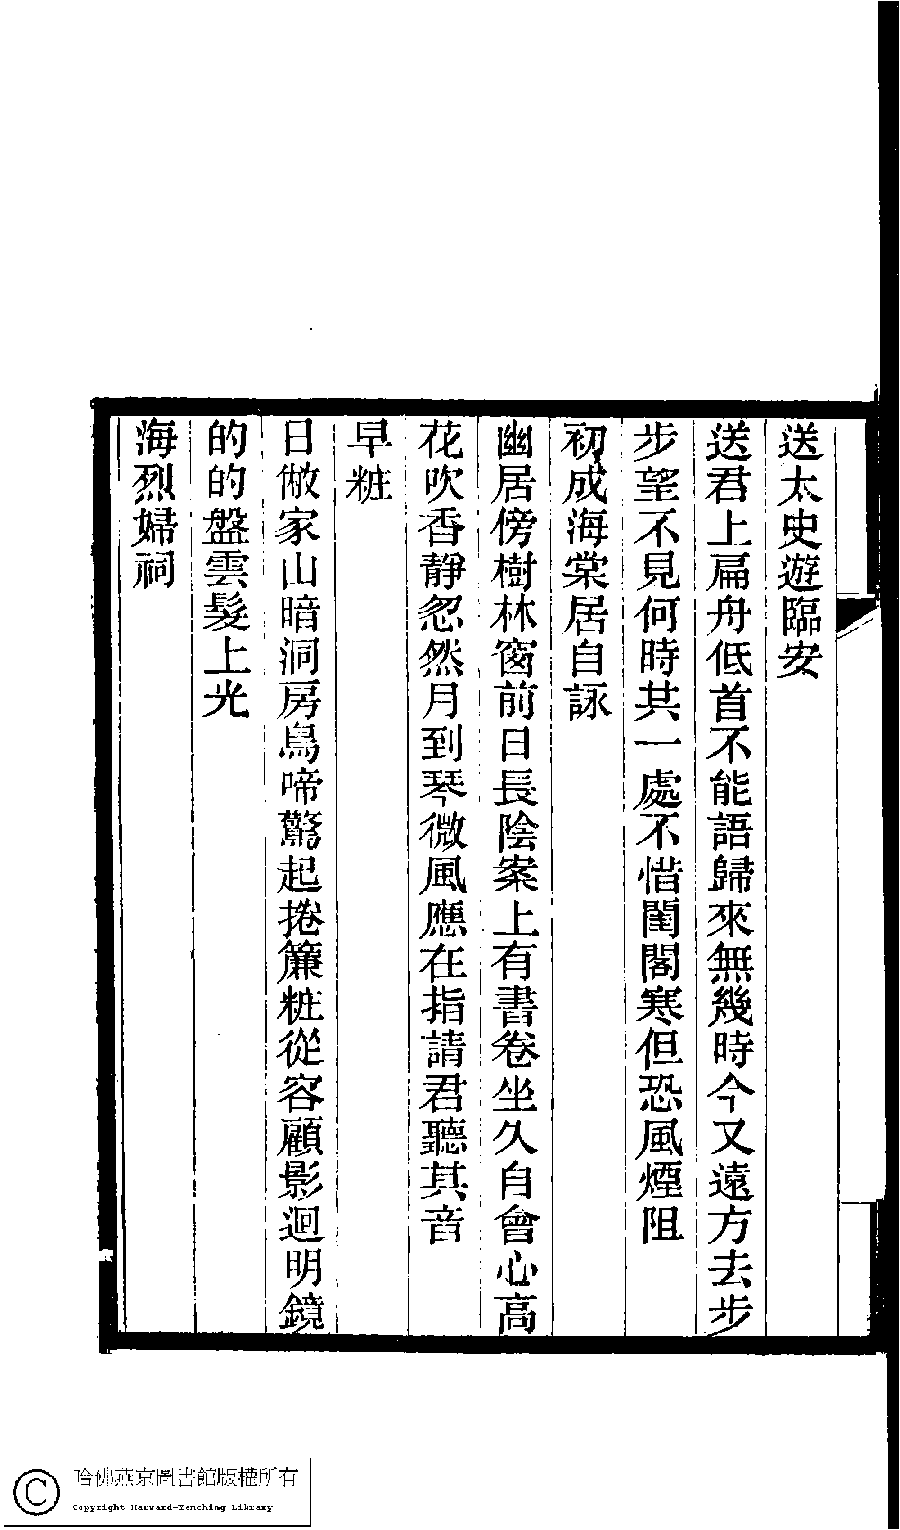 送太史遊臨安
送君上扁舟低首不能語歸來無幾時今又遠方去步
步望不見何時共一處不惜閨閣寒但恐風煙阻
初成海棠居自詠
幽居傍樹林窗前日長陰案上有書卷坐久自會心高
花吹香靜忽然月到琴微風應在指請君聽其音
早粧
日儆家山暗洞房鳥啼驚起捲簾粧從容顧影迴明鏡
的的盤雲髮上光
海烈婦祠
哈佛燕京圖書館版權所有
Copyright Harvard-Yenching Library